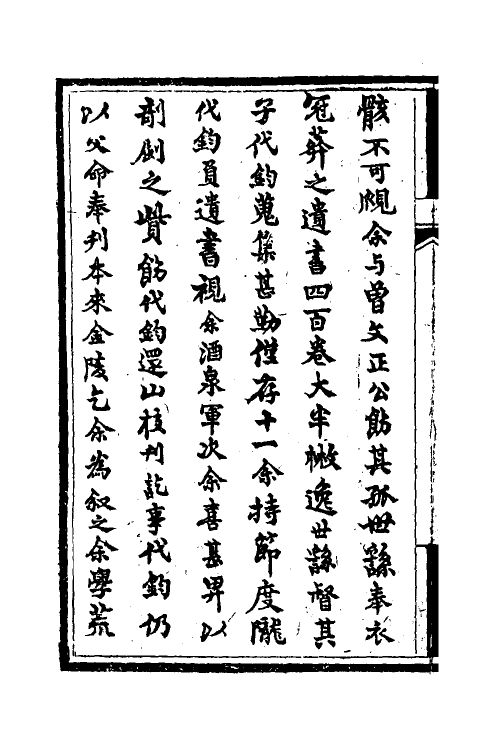 骸不可覞余与曾文正公飭其孤世繇奉衣
冠葬之遺書四百卷大半檄逸世繇督其
子代鈞蒐集甚勤僅存十一余持節度隴
代鈞負遺書視余酒泉軍次余喜甚畀以
剞劂之貲飭代鈞還山校刊訖事代鈞仍
以父命奉刊本來金陵乞余為叙之余學荒